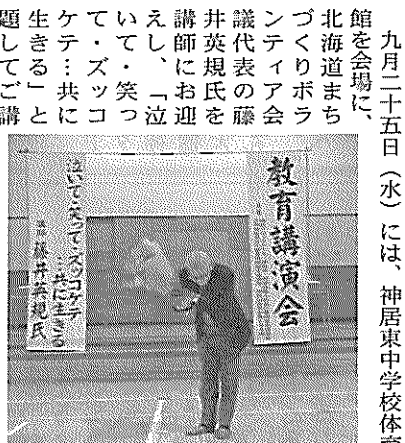 九月二十五日（水）には、神居東中学校体育
館を会場に、
北海道まち
づくりボラ
ンティア会
議代表の藤
井英規氏を
講師にお迎
えし、「泣
いて・笑っ
て・ズッコ
ケテ…共に
生きる」と
題してご講
教育講演会
泣いて・笑って・ズッコケテ
…共に生きる
講師 藤井英規氏